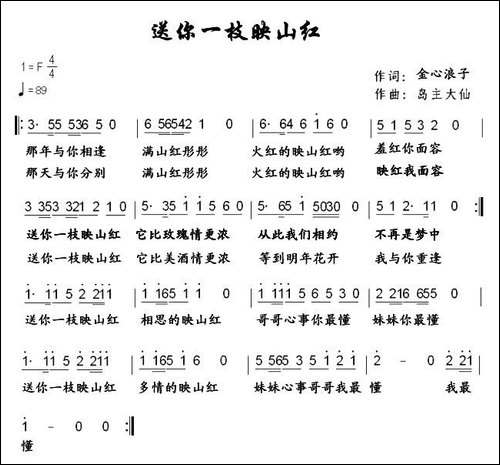 送你一枝映山红
1=F 4/4
♩=89
作词：金心浪子
作曲：岛主大仙
‖: 3· 55 536 5 0 | 6 56542 1 0 | 6· 64 6 i 6 0 | 5 1 5 3 2 0 |
那年与你相逢 满山红彤彤 火红的映山红哟 羞红你面容
那天与你分别 满山红彤彤 火红的映山红哟 映红我面容
3 353 332̣1 2 1 0 | 5· 35 i i 5 6 0 | 5· 65 i 5030 0 | 5 1 2· 1 1 0 :‖
送你一枝映山红 它比玫瑰情更浓 从此我们相约 不再是梦中
送你一枝映山红 它比美酒情更浓 等到明年花开 我与你重逢
i· i i 5 2 2 i i | i i 6 5 i i 0 | i i i i 5 6 5 3 0 | 2 216 655 0 |
送你一枝映山红 相思的映山红 哥哥心事你最懂 妹妹你最懂
i· i i 5 2 2 i i | i i 6 5 i 6 0 | 5 565 3 5 i 2 i | 2 – 0 2 2 i |
送你一枝映山红 多情的映山红 妹妹心事哥哥我最 懂 我最
i – 0 0 :‖
懂